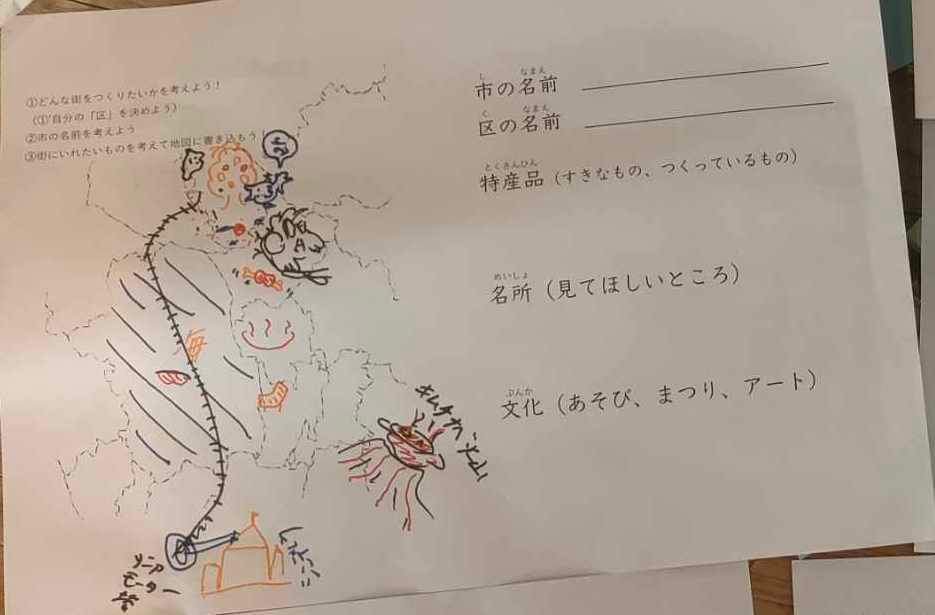 ①どんな街をつくりたいかを考えよう！
（①'自分の「区」を決めよう）
②市の名前を考えよう
③街にいれたいものを考えて地図に書き込もう！
し なまえ
市の名前
く なまえ
区の名前
とくさんひん
特産品（すきなもの、つくっているもの）
めいしょ
名所（見てほしいところ）
ぶんか
文化（あそび、まつり、アート）
海